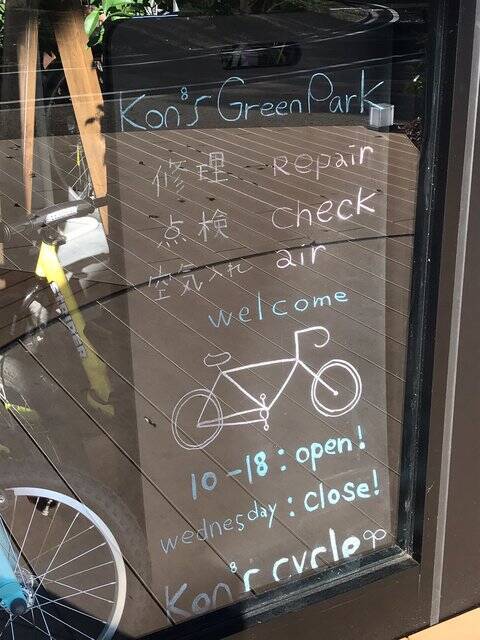 Kon's GreenPark
修理 Repair
点検 check
空気入れ air
welcome
10-18:open!
wednesday:close!
Kon's cycle